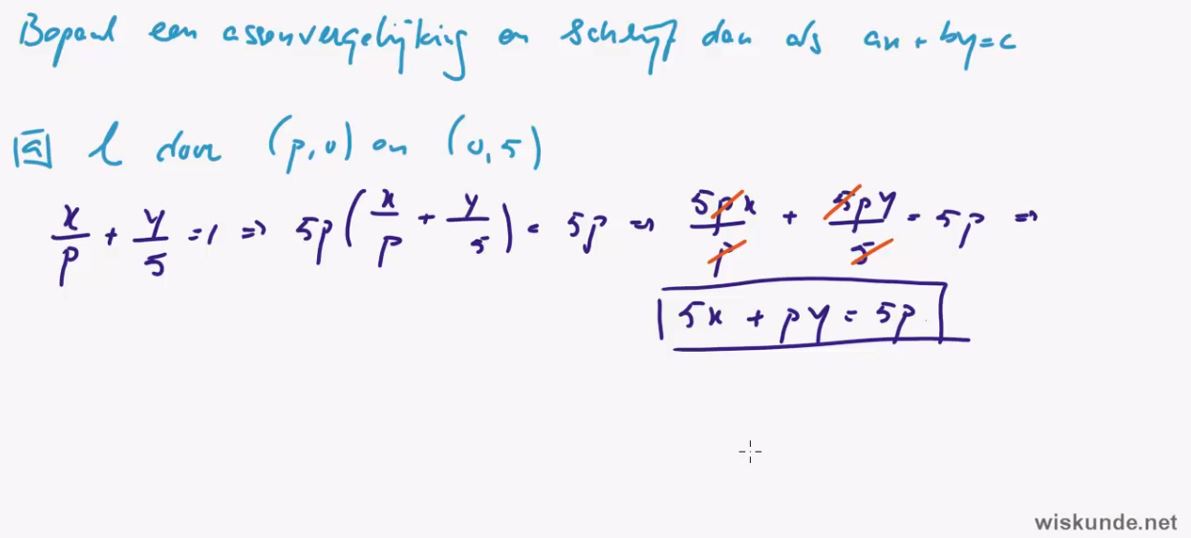 Bepaal een assenvergelijking en schrijf dan als ax + by = c
[a] l door (p,0) en (0,5)
x/p + y/5 = 1 => 5p(x/p + y/5) = 5p => 5px/p + 5py/5 = 5p =>
5x + py = 5p
wiskunde.net